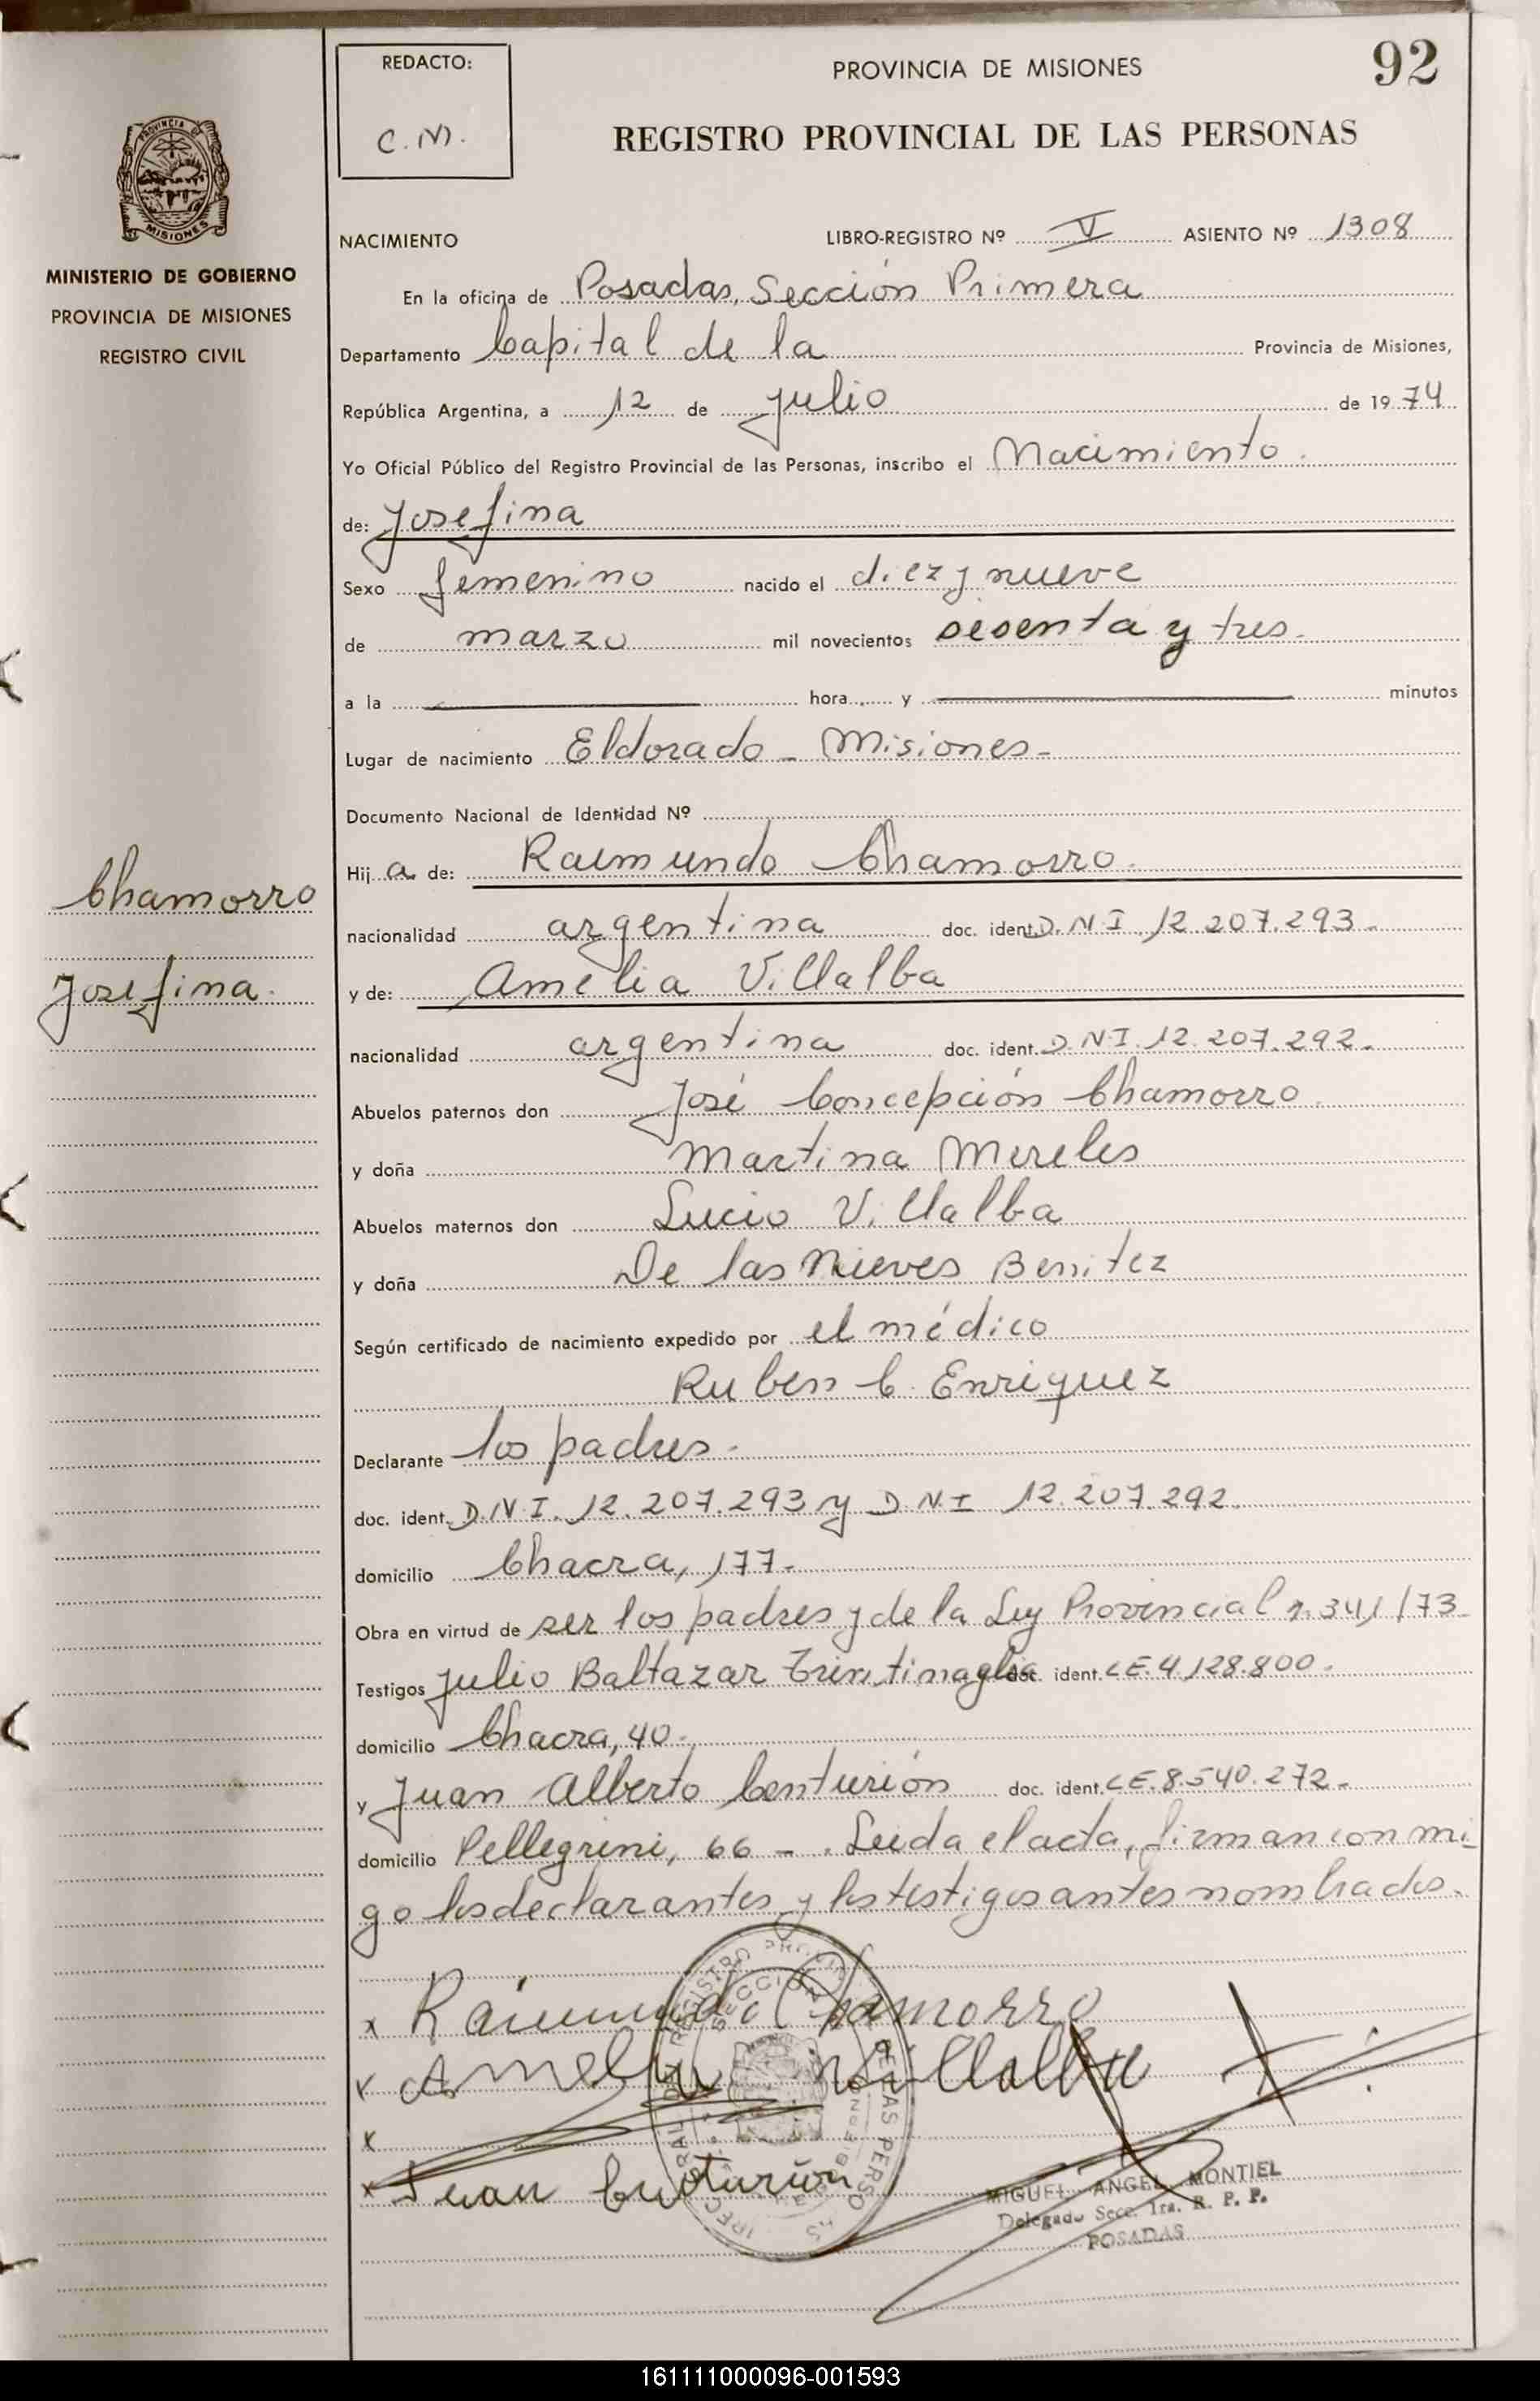 92
REDACTO:
C. M.
PROVINCIA DE MISIONES
REGISTRO PROVINCIAL DE LAS PERSONAS
PROVINCIA DE
MISIONES
MINISTERIO DE GOBIERNO
PROVINCIA DE MISIONES
REGISTRO CIVIL
NACIMIENTO LIBRO-REGISTRO Nº V ASIENTO Nº 1308
En la oficina de Posadas, Sección Primera
Departamento Capital de la Provincia de Misiones,
República Argentina, a 12 de julio de 1974
Yo Oficial Público del Registro Provincial de las Personas, inscribo el Nacimiento.
de: Josefina
Sexo femenino nacido el diez y nueve
de marzo mil novecientos sesenta y tres.
a la hora y minutos
Lugar de nacimiento Eldorado - Misiones-
Documento Nacional de Identidad Nº
Hija de: Raimundo Chamorro.
Chamorro
nacionalidad argentina doc. ident. D.N.I. 12.207.293.
Josefina.
y de: Amelia Villalba
nacionalidad argentina doc. ident. D.N.I. 12.207.292.
Abuelos paternos don José Concepción Chamorro.
y doña Martina Mereles
Abuelos maternos don Lucio Villalba
y doña De las Nieves Benitez
Según certificado de nacimiento expedido por el médico
Ruben C. Enriquez
Declarante los padres.
doc. ident. D.N.I. 12.207.293 y D.N.I 12.207.292.
domicilio Chacra, 177.
Obra en virtud de ser los padres y de la Ley Provincial n. 341/73
Testigos Julio Baltazar doc. ident. LE. 4.128.800.
domicilio Chacra, 40.
y Juan Alberto Centurión doc. ident. LE. 8.540.272.
domicilio Pellegrini, 66 - . Leida el acta, firman con mi
go los declarantes y los testigos antes nombrados.
x Raimundo Chamorro
x Amelia Villalba
x
x Juan Centurión
MIGUEL ANGEL MONTIEL
Delegado Secc. 1ra. R. P. P.
POSADAS
161111000096-001593